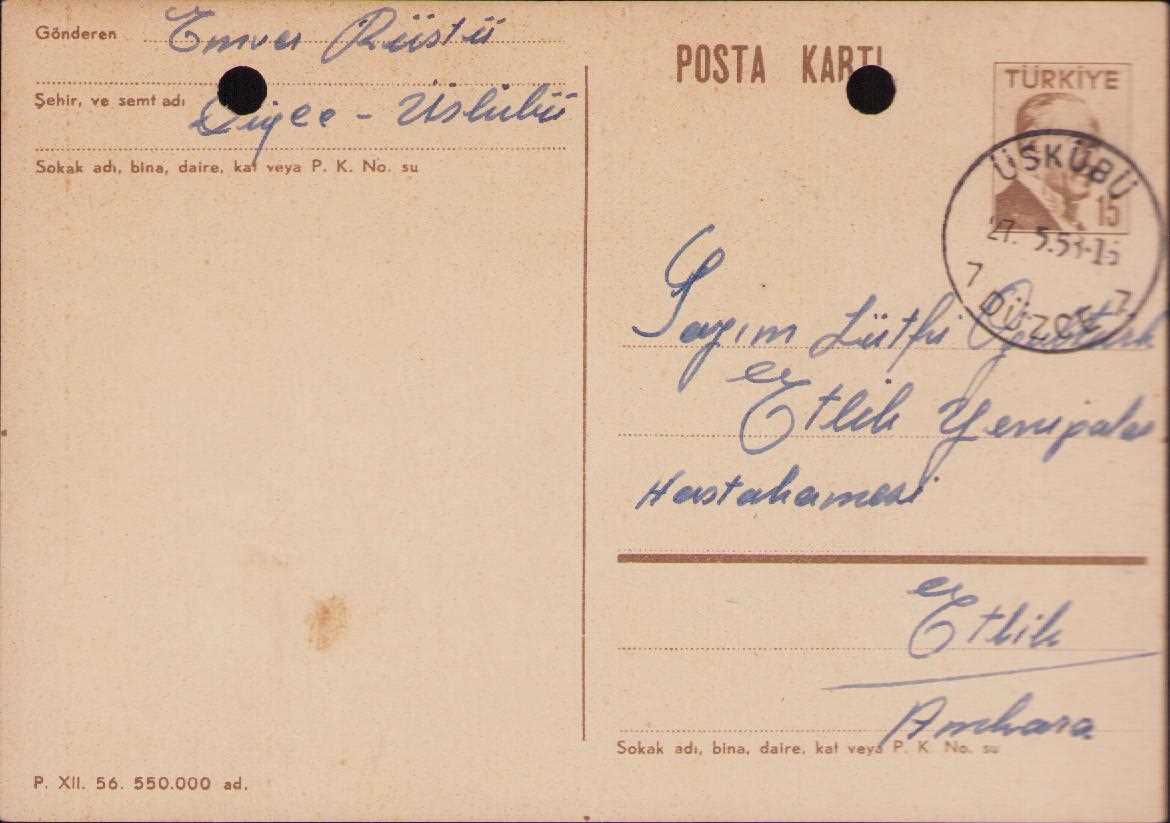 Gönderen Enver Rüştü
Şehir, ve semt adı - Üskübü
Sokak adı, bina, daire, kat veya P. K. No. su
P. XII. 56. 550.000 ad.
POSTA KARTI
TÜRKİYE
15
ÜSKÜBÜ
27. 5.58-15
7 DÜZCE 7
Sayın Lütfü
Etlik
Hastahanesi
Etlik
Ankara
Sokak adı, bina, daire, kat veya P. K. No. su